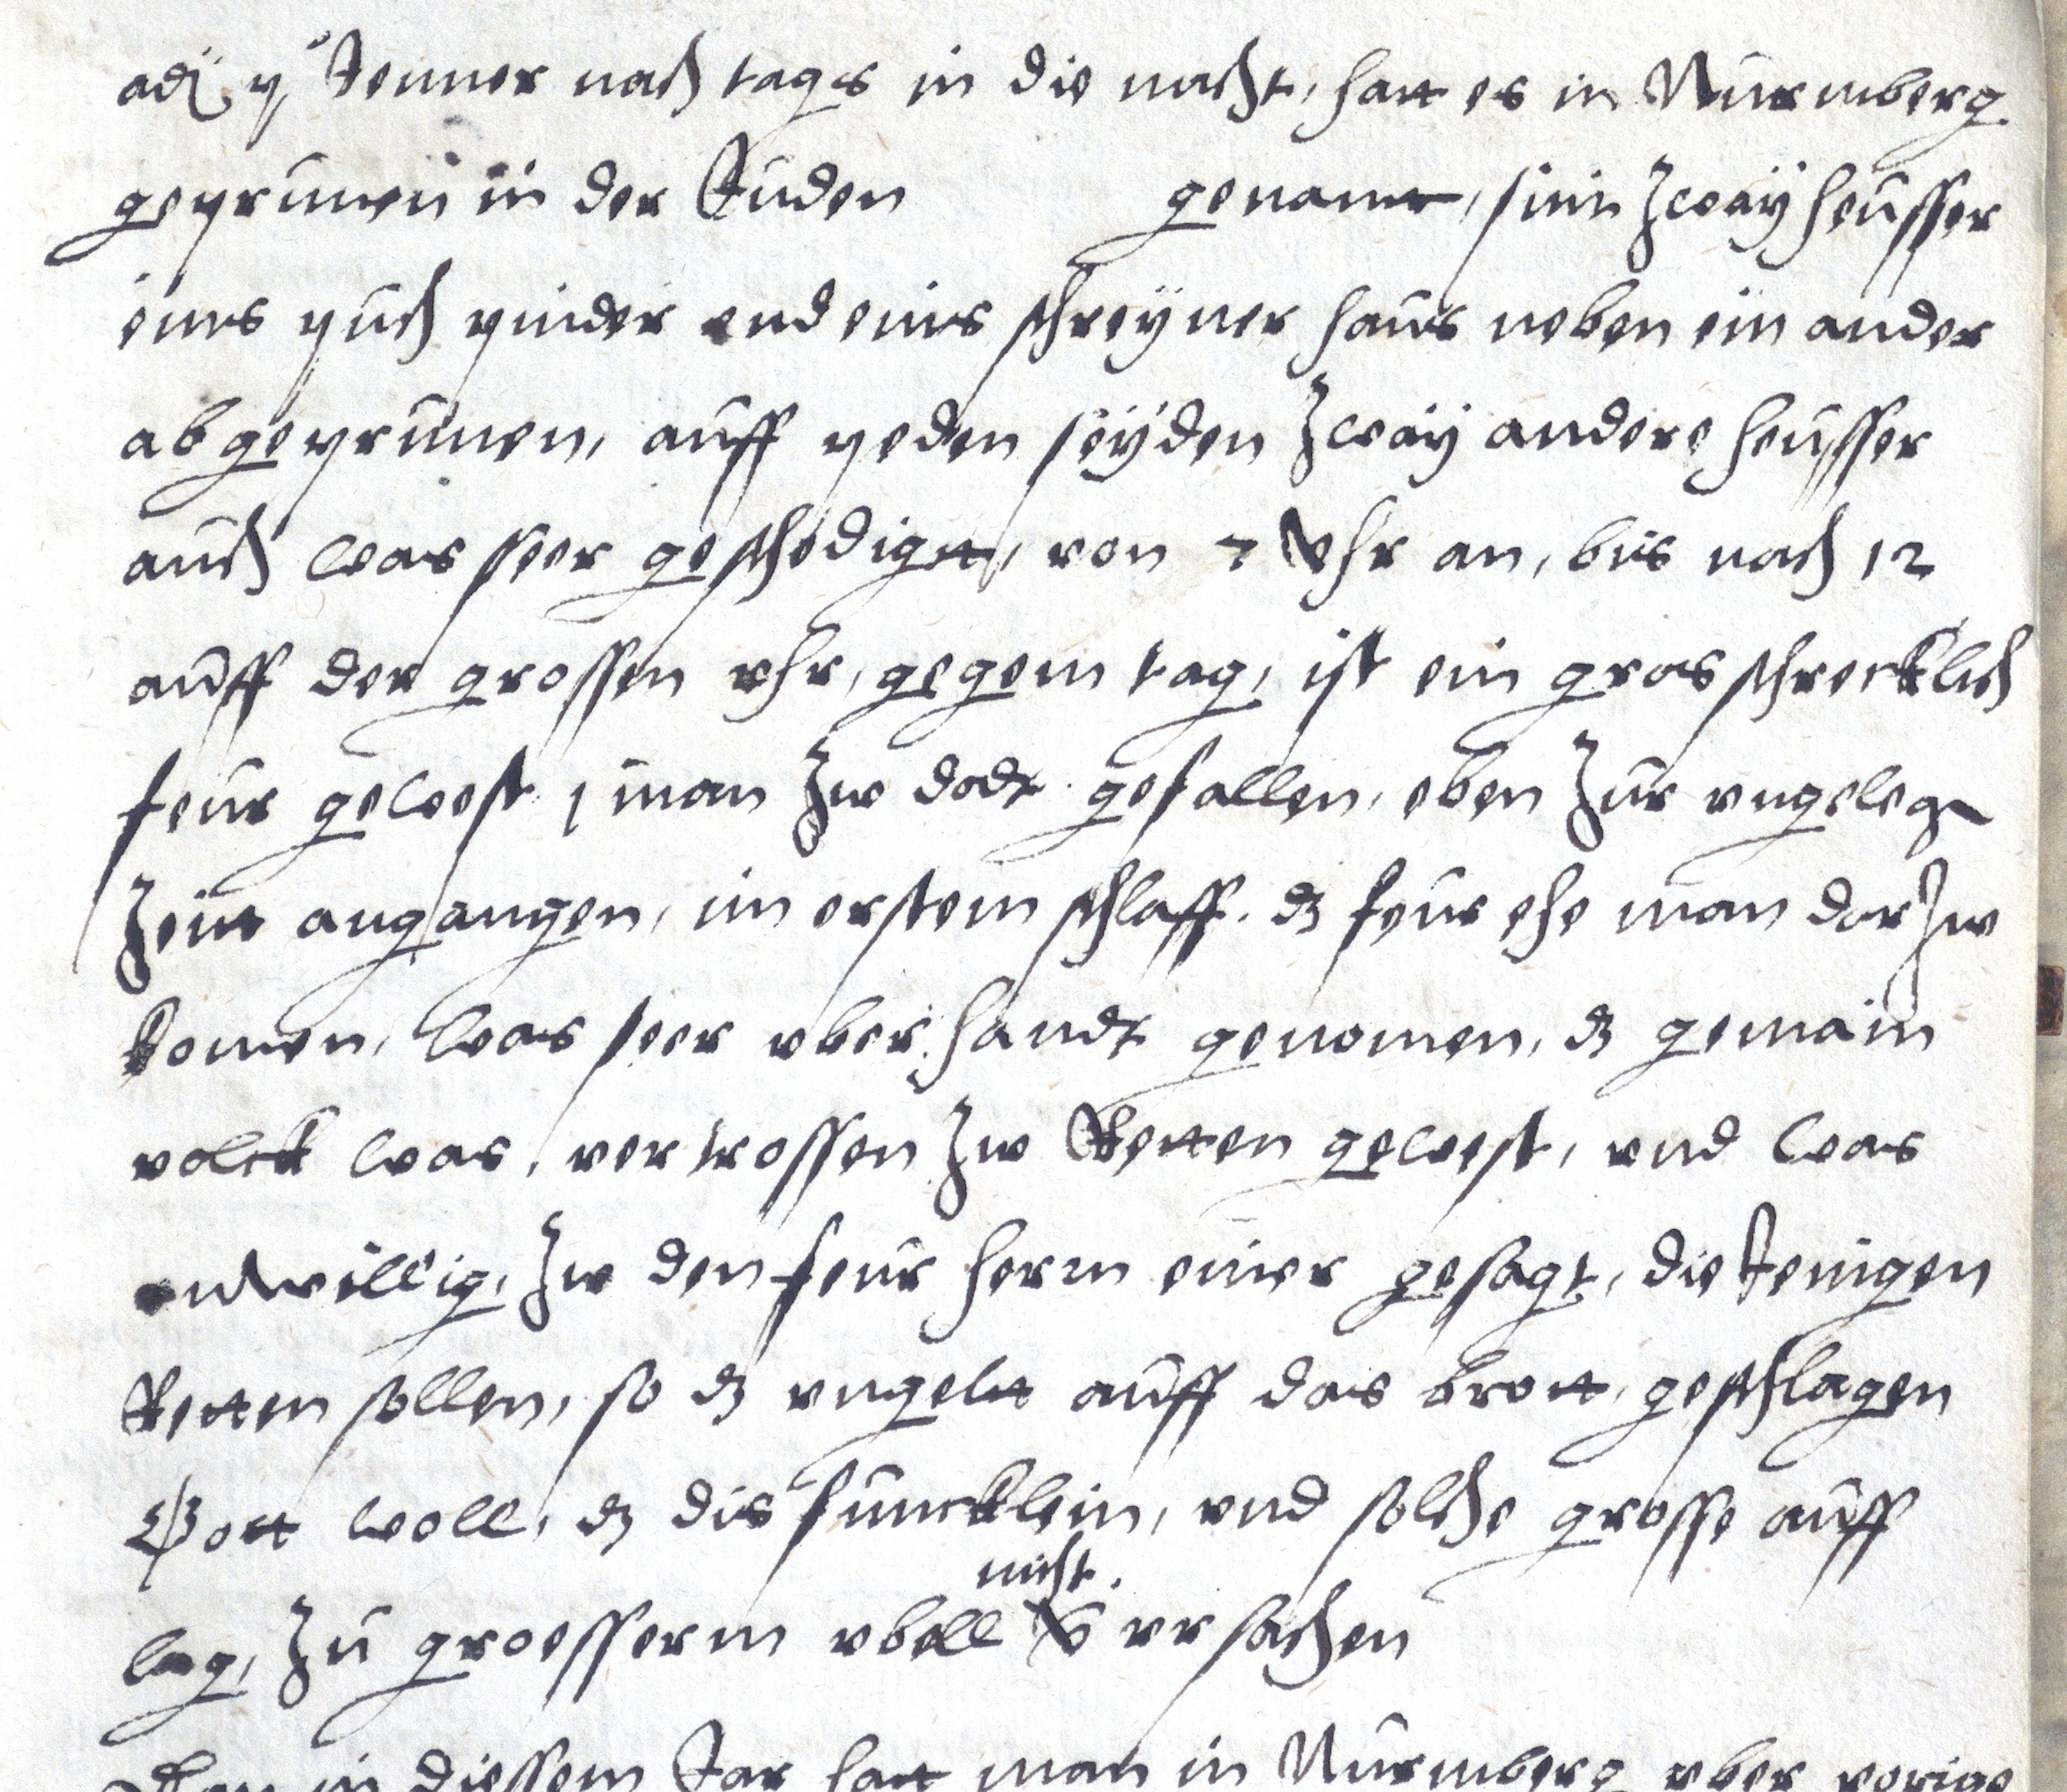 adj y° Jenner nach tags in die nacht, hatt es in Nurmberg
geprunen in der Juden genant, sinn zway heusser
eins puch pinder vnd eins schreyner haus neben ein ander
abgeprunen, auff peden seyden zway andere heusser
auch was seer geschedigtt, von 7 Vhr an, bis nach 12
auff der grossen vhr, gegem tag, ist ein gros schrecklich
feur gewest 1 man zw dodt gefallen, eben zur vngelegn
zeitt angangen, im erstem schlaff. dz feur ehe man dar zw
komen, was seer vber handt genomen, dz gemain
volck was, vertrossen zw Retten gewest, vnd was
vnwillig, zw den feur herrn einer gesagt, die Jenigen
Retten sollen, so dz vngeltt auff das brott, geschlagen
Gott woll, dz dis funcklein, vnd solche grosse auff
nicht.
lag, zu groesserm vbell vrsachen
in diessem Jar hatt man in Nurmberg vber vorige